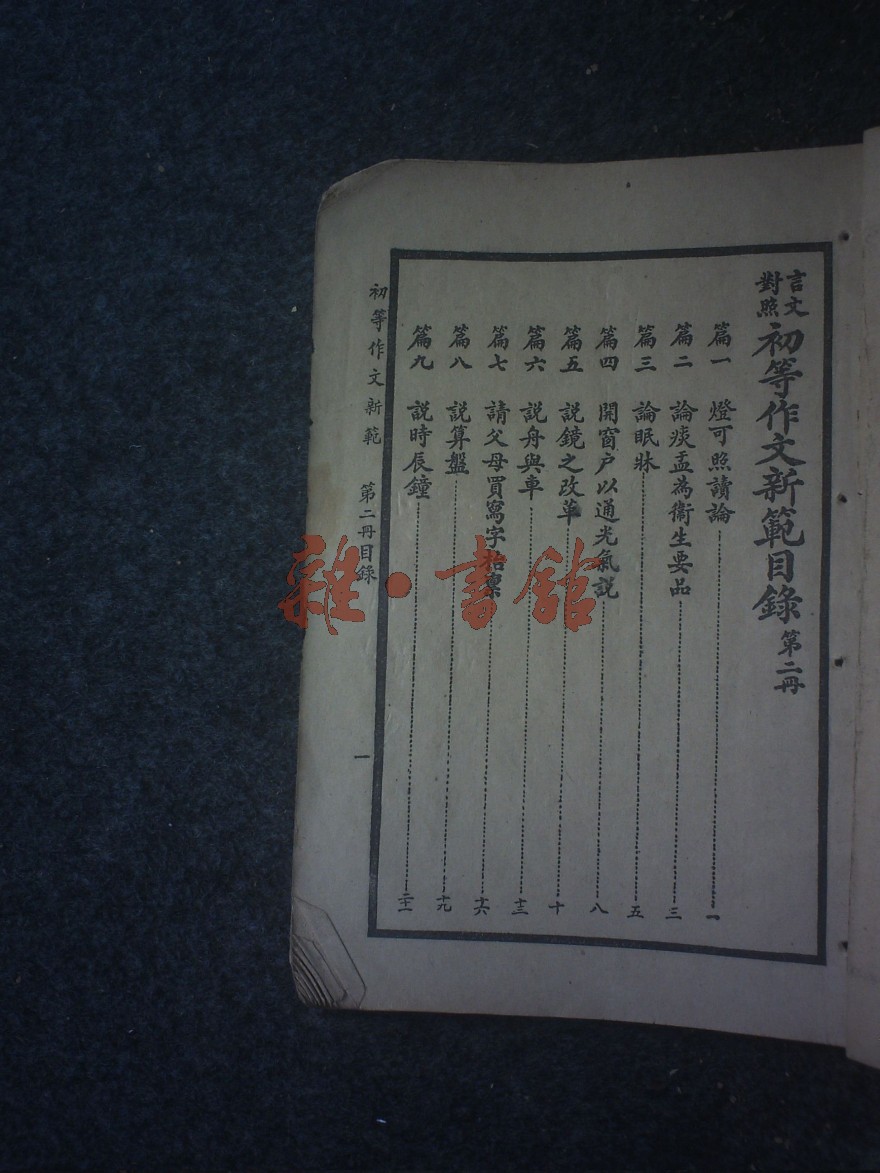 言文對照初等作文新範目錄 第二冊
篇一 燈可照讀論 一
篇二 論痰盂為衞生要品 三
篇三 論眠牀 五
篇四 開窗户以通光氣説 八
篇五 説鏡之改革 十
篇六 説舟與車 十三
篇七 請父母買寫字 十六
篇八 説算盤 十九
篇九 説時辰鐘 二十一
初等作文新範 第二冊目錄 一
雜·書館